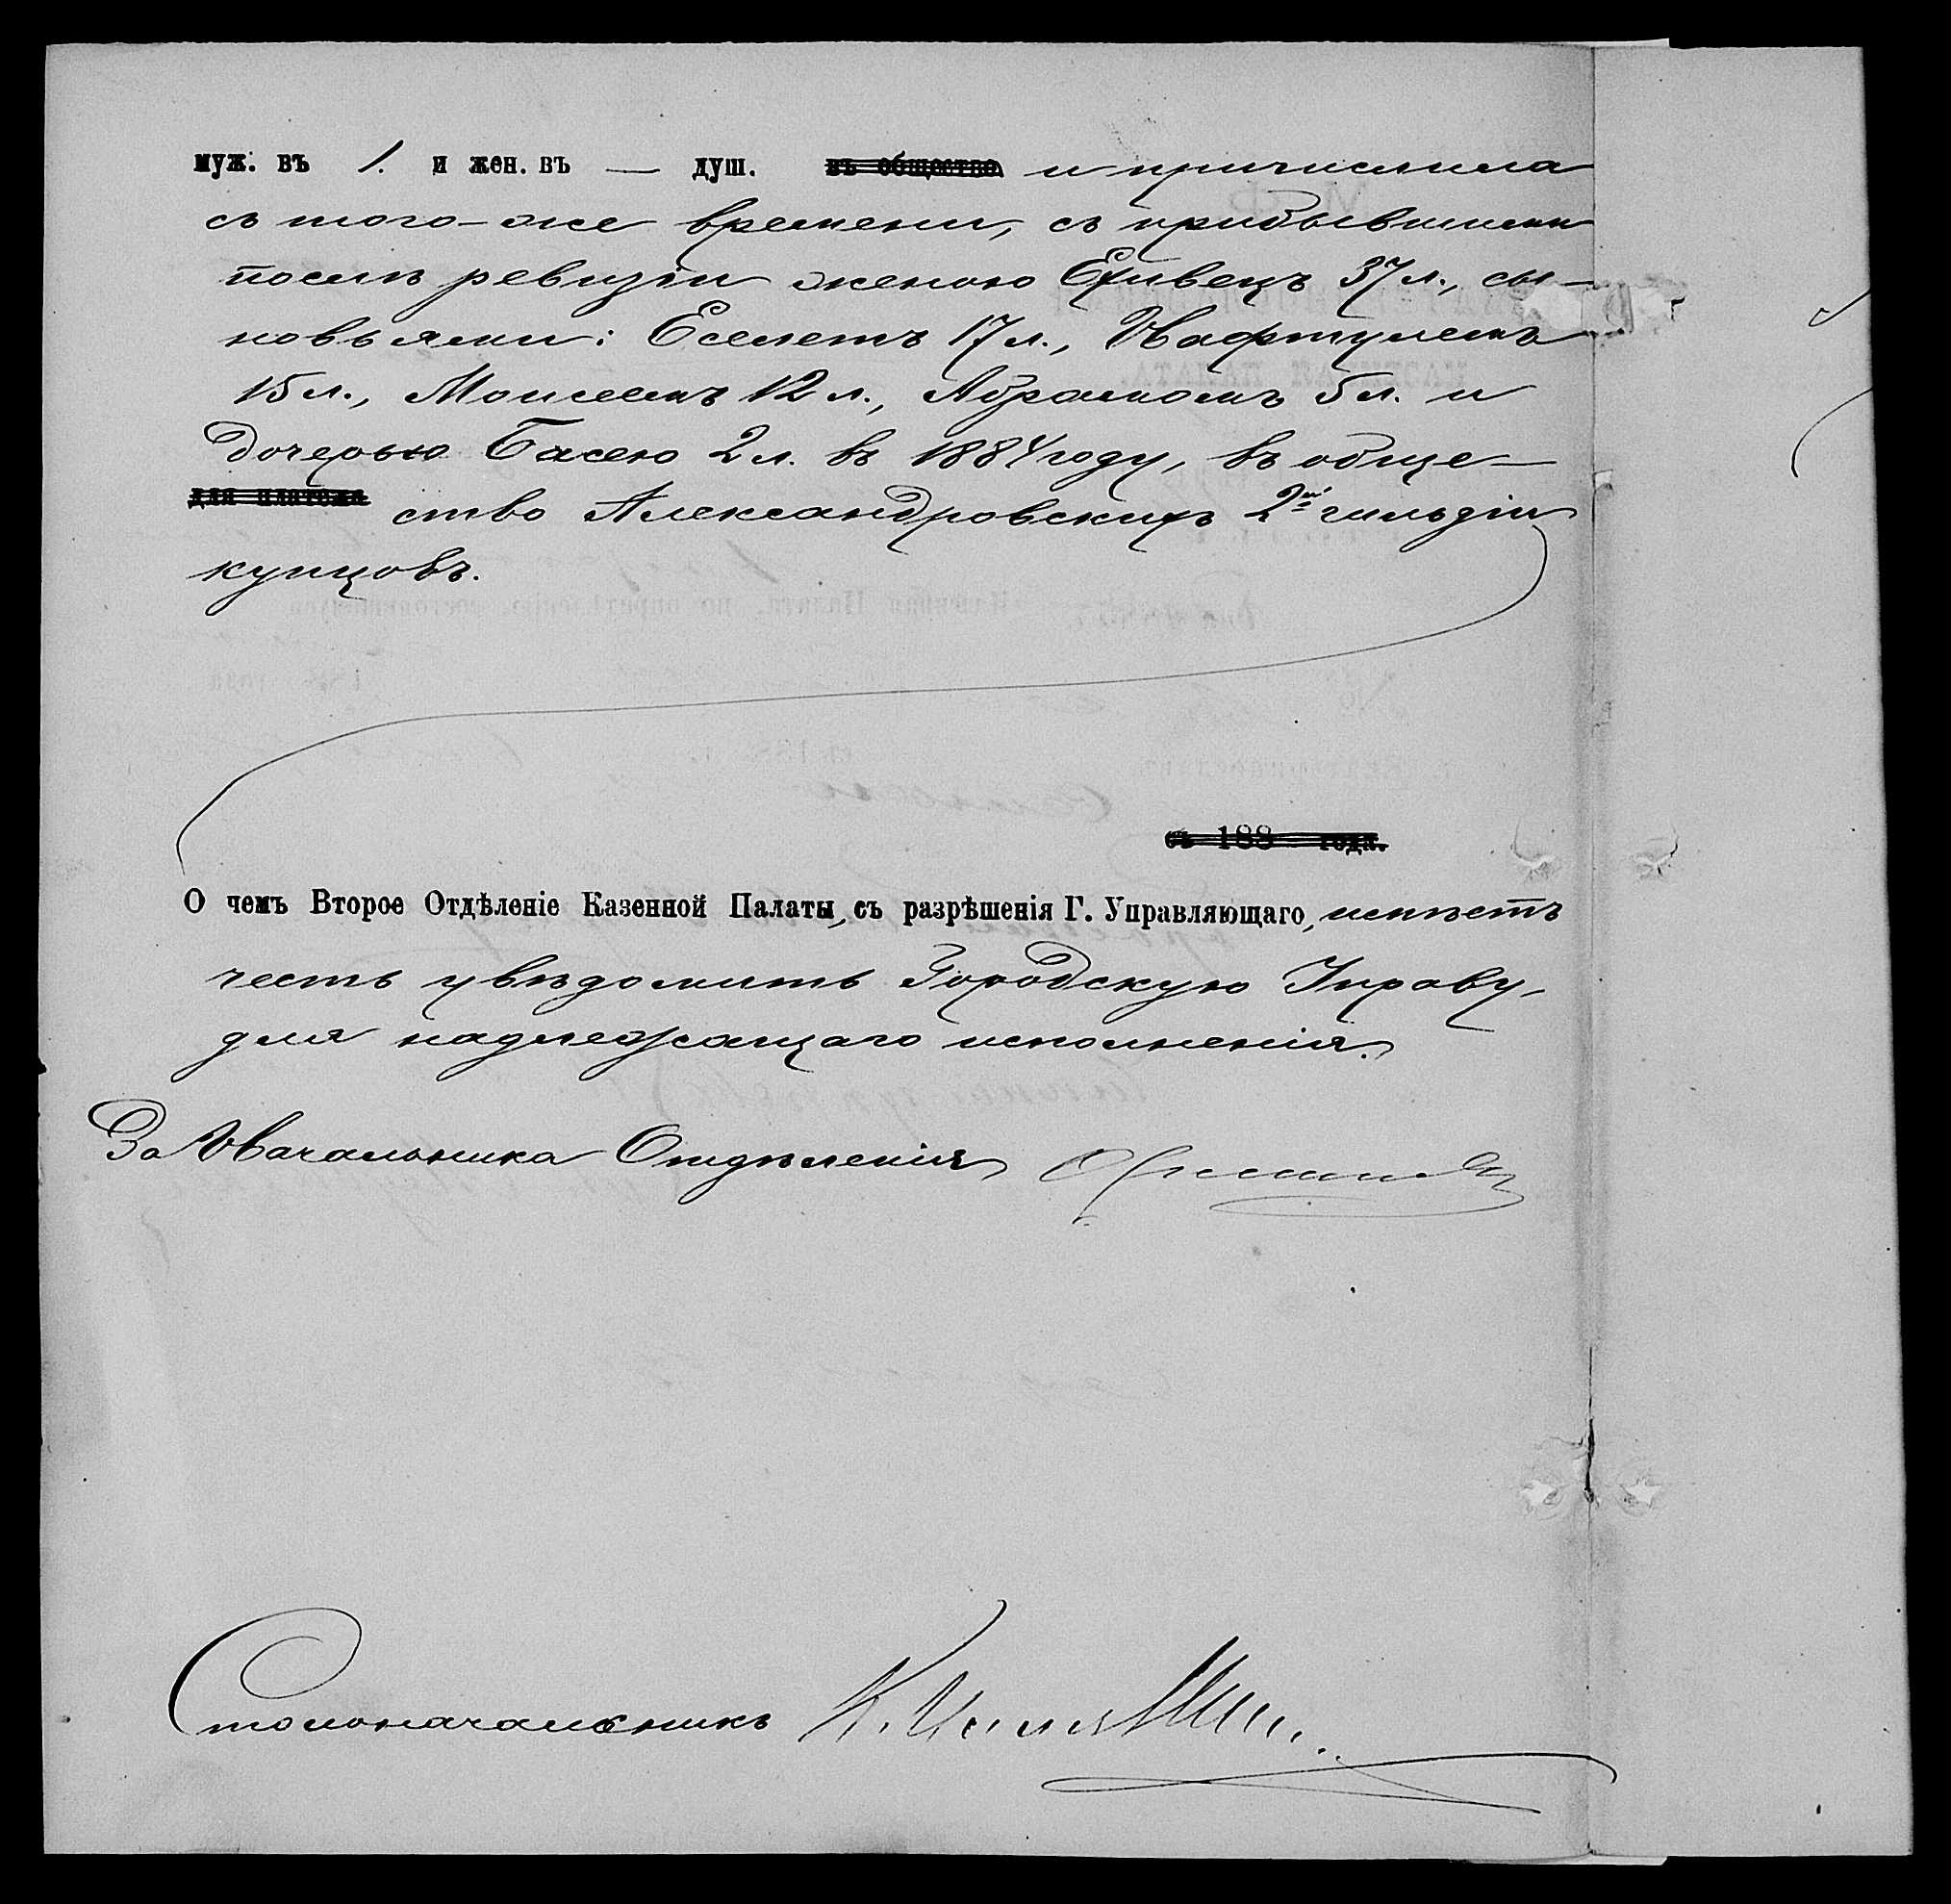 муж. въ 1. и жен. въ — душ. въ общество и причислила
съ того-же времени, съ прибывшими
послѣ ревизіи женою Ехивецъ 37 л., сы-
новьями: Еселетъ 17 л., Нафтулемъ
15 л., Моисеемъ 12 л., Абрамомъ 5 л. и
дочерью Басею 2 л. въ 1884 году, въ обще-
для платежа ство Александровскихъ 2й гильдіи
купцовъ.
съ 188 года.
О чемъ Второе Отдѣленіе Казенной Палаты, съ разрѣшенія Г. Управляющаго, имѣетъ
честь увѣдомить Городскую Управу,
для надлежащаго исполненія.
За Начальника Отдѣленія
Столоначальникъ К.